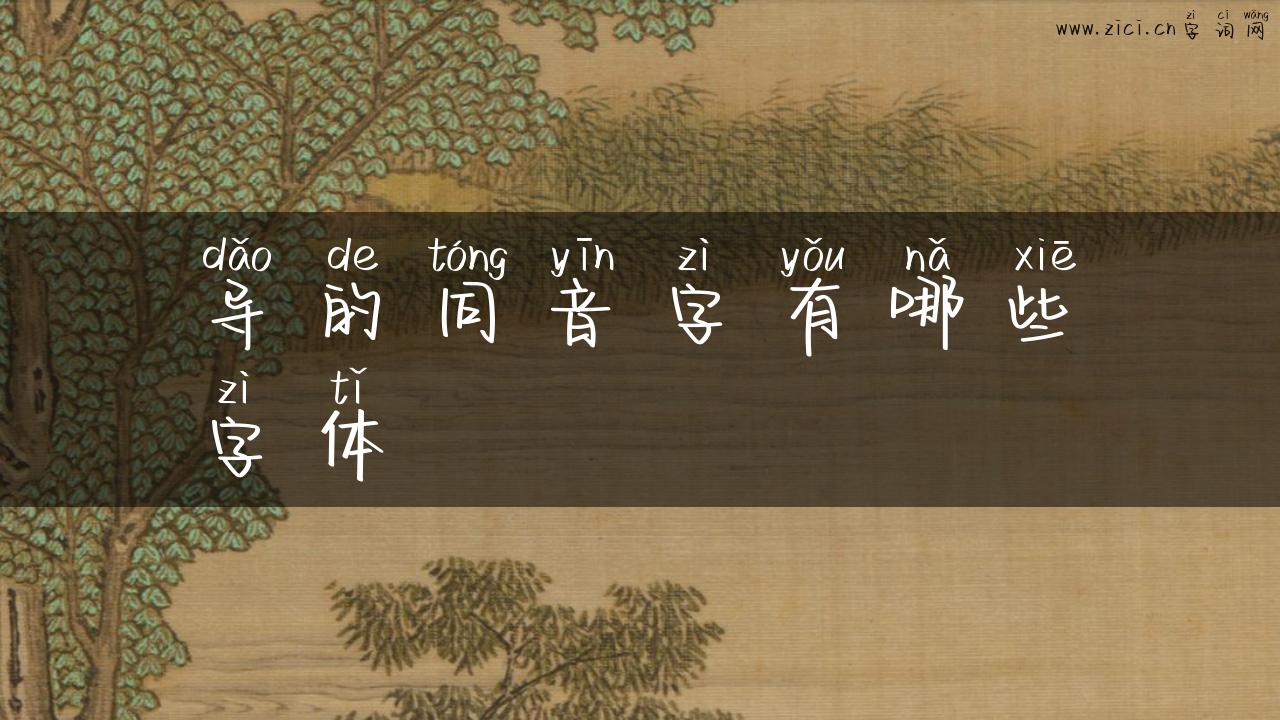 zì cí wǎng
www.zici.cn 字词网
dǎo de tóng yīn zì yǒu nǎ xiē
导的同音字有哪些
zì tǐ
字体